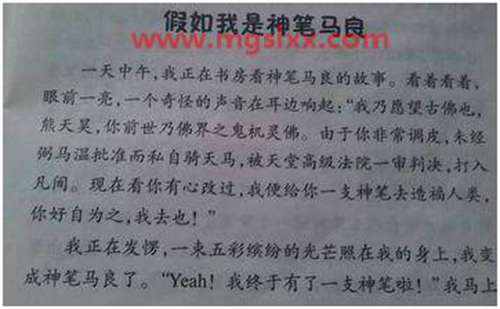 假如我是神笔马良
www.mgslxx.com
一天中午，我正在书房看神笔马良的故事。看着看着，
眼前一亮，一个奇怪的声音在耳边响起：“我乃愿望古佛也，
熊天昊，你前世乃佛界之鬼机灵佛。由于你非常调皮，未经
弼马温批准而私自骑天马，被天堂高级法院一审判决，打入
凡间。现在看你有心改过，我便给你一支神笔去造福人类，
你好自为之，我去也！”
我正在发愣，一束五彩缤纷的光芒照在我的身上，我变
成神笔马良了。“Yeah！我终于有了一支神笔啦！”我马上